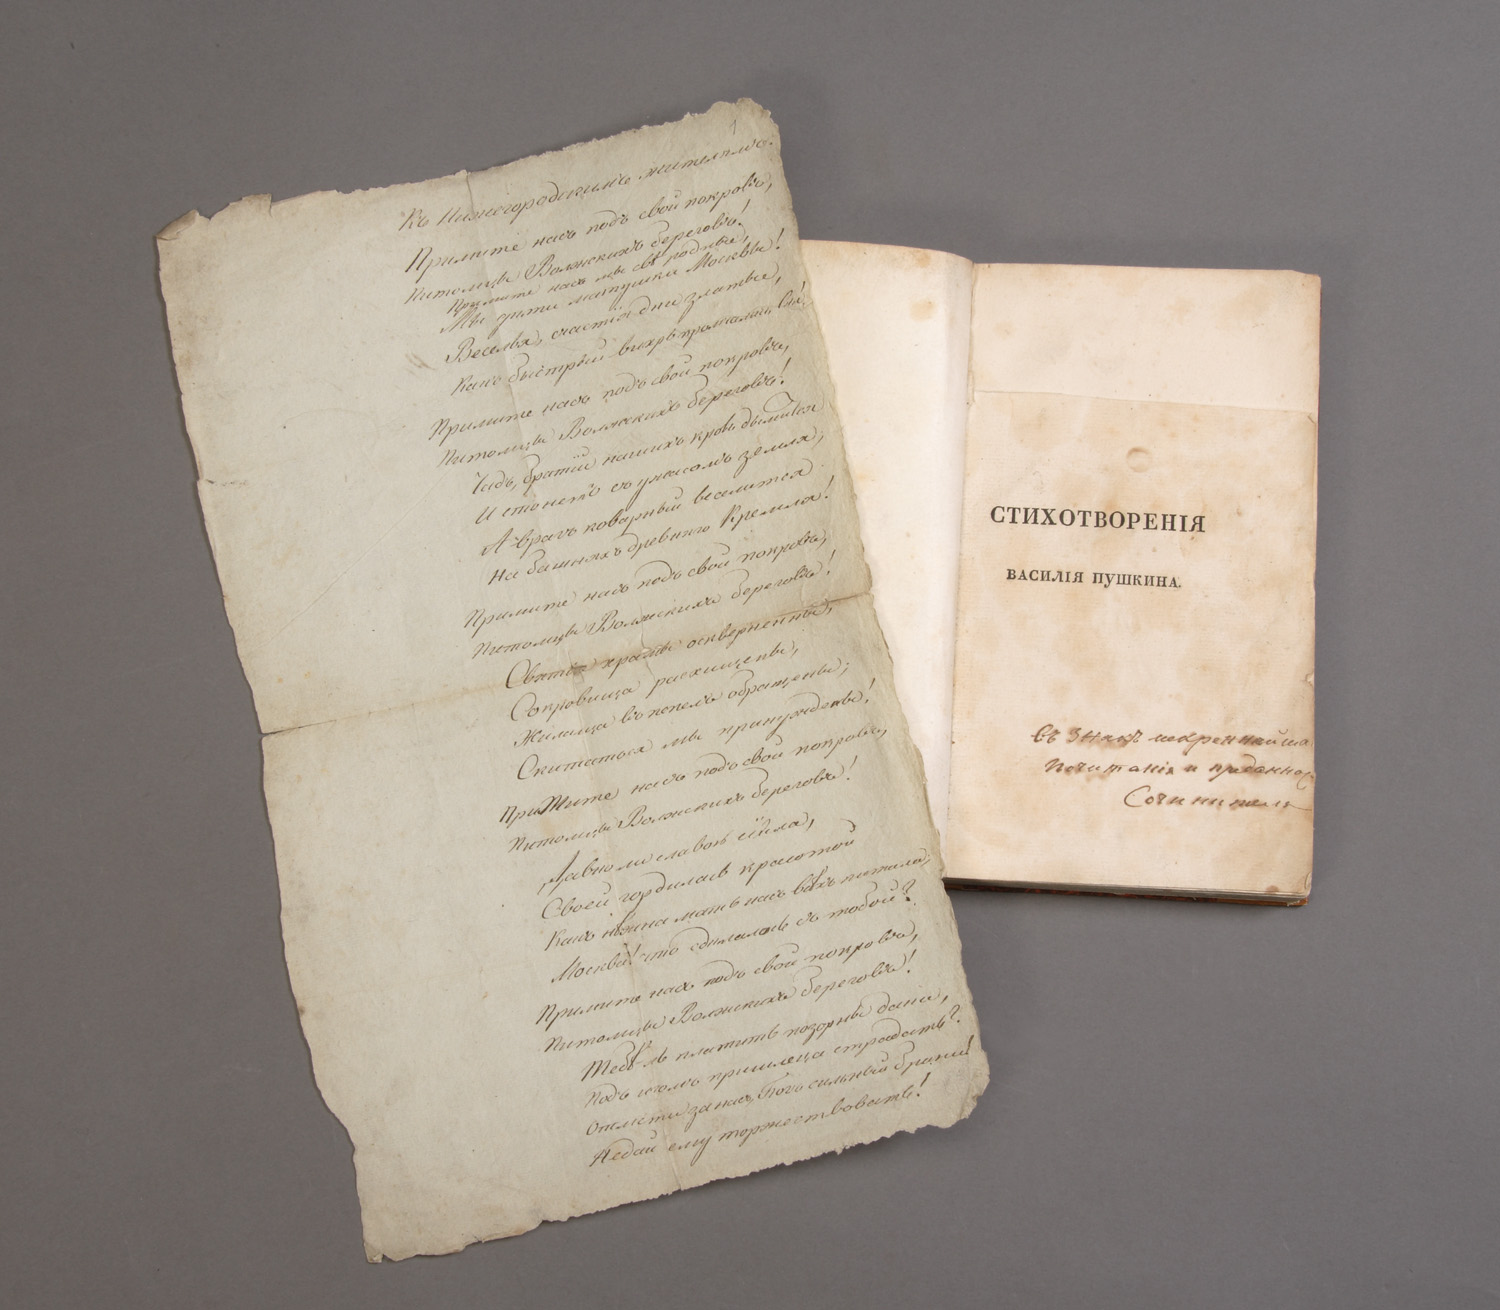 1
Къ Нижегородскимъ жителямъ.
Примите насъ подъ свой покровъ,
Питомцы Волжскихъ береговъ!
Примите насъ мы всѣ родные,
Мы дети матушки Москвы!
Веселья, счастія дни златые,
Какъ быстрый вихрь промчались вы!
Примите насъ подъ свой покровъ,
Питомцы Волжскихъ береговъ!
Чадъ, братій нашихъ кровь дымится
И стонетъ съ ужасомъ земля;
А врагъ коварный веселится
На башняхъ древняго Кремля!
Примите насъ подъ свой покровъ,
Питомцы Волжскихъ береговъ!
Святые храмы осквернены,
Сокровища расхищены,
Жилища въ пепелъ обращены;
Скитаться мы принуждены!
Примите насъ подъ свой покровъ,
Питомцы Волжскихъ береговъ!
Давно ли славою сіяла,
Своей гордилась красотой
Какъ нѣжна мать насъ всѣхъ питала,
Москва! что сдѣлалось съ тобой?
Примите насъ подъ свой покровъ,
Питомцы Волжскихъ береговъ!
Тебѣ-ль платить позорны дани,
Подъ игомъ пришлеца страдать?
Отмсти за насъ, Богъ сильный брани!
Недай ему торжествовать!
СТИХОТВОРЕНІЯ
ВАСИЛІЯ ПУШКИНА.
въ знакъ искреннѣйша
почитанія и преданнос
Сочинитель